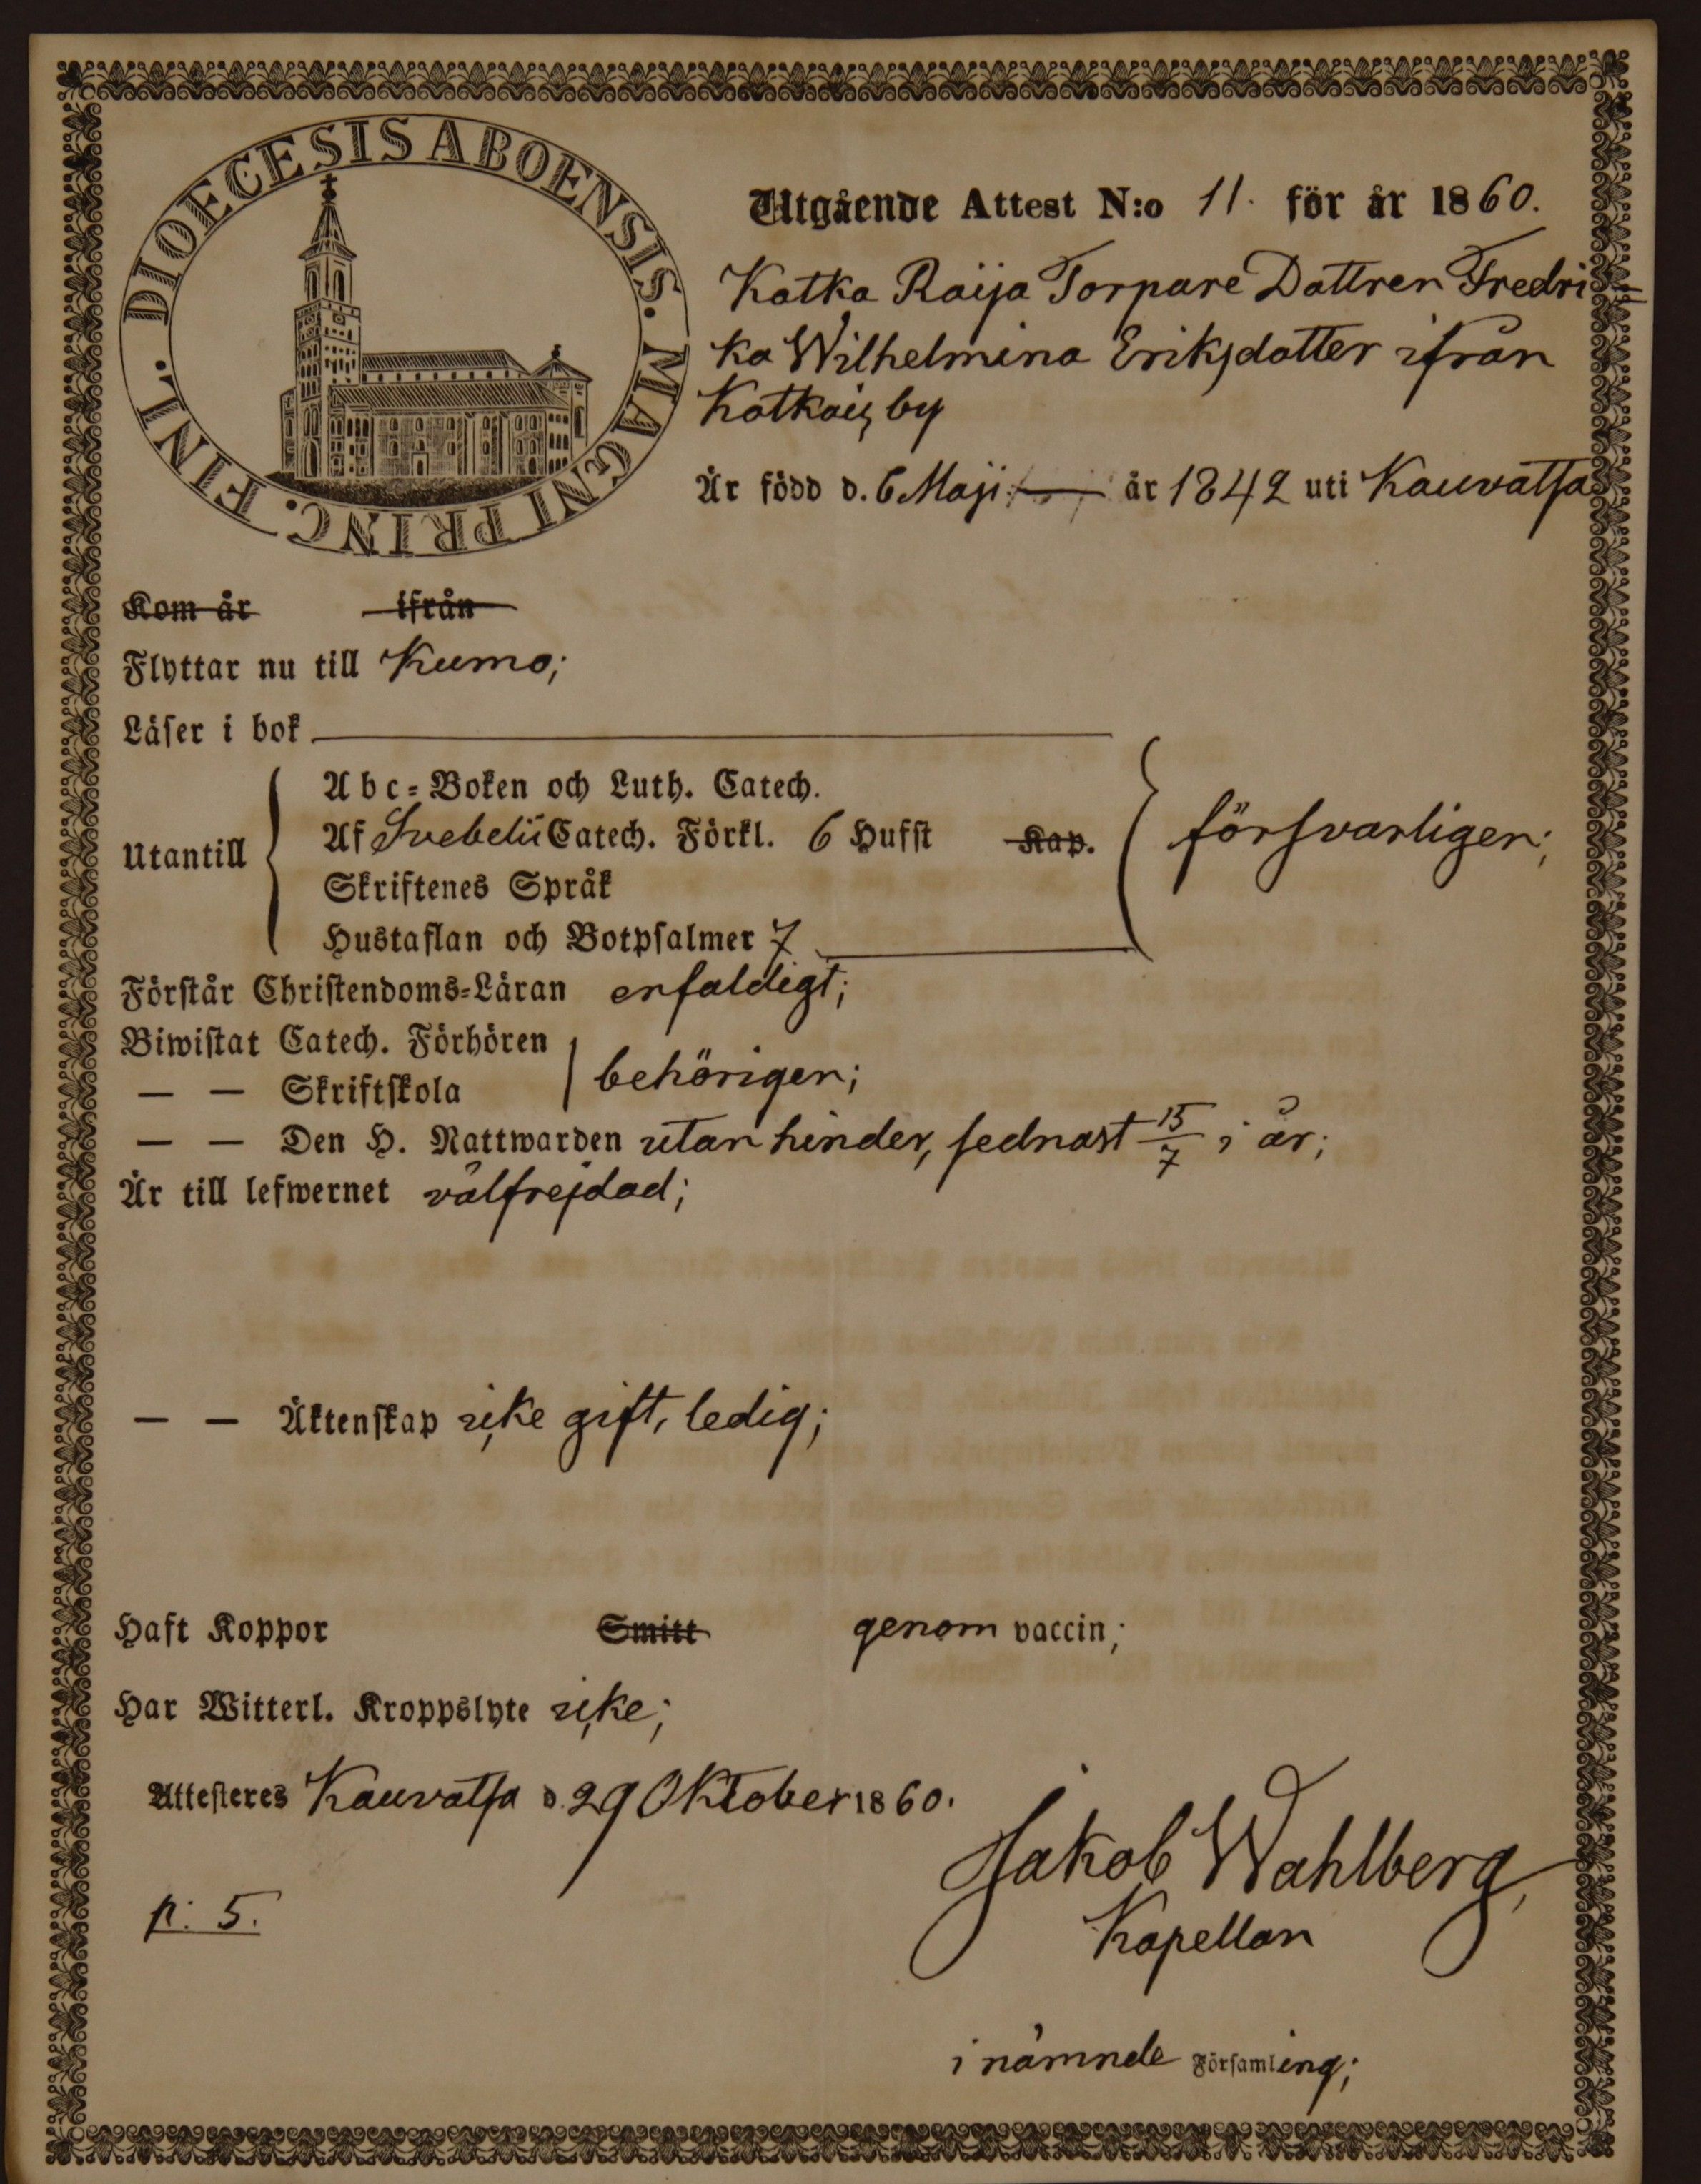 DIOECESIS ABOENSIS. MAGNI PRINC. FINL.
Utgående Attest N:o 11. för år 1860.
Katka Raija Torpare Dattren Fredri=
ka Wilhelmina Eriksdatter ifrån
by
Är född d. 6 Maji år 1842 uti Kauvatsa
Kom år ifrån
Flyttar nu till Kumo;
Läser i bok
Utantill
Abc=Boken och Luth. Catech.
Af Svebelii Catech. Förkl. 6 Hufst Kap.
Skriftenes Språk
Hustaflan och Botpsalmer 7
försvarligen;
Förstår Christendoms=Läran enfaldigt;
Biwistat Catech. Förhören
— — Skriftskola
behörigen;
— — Den H. Nattwarden utan hinder, sednast 15/7 i år;
Är till lefwernet välfrejdad;
— — Äktenskap icke gift, ledig;
Haft Koppor Smitt genom vaccin;
Har Witterl. Kroppslyte icke;
Attesteres Kauvatsa d. 29 Oktober 1860.
Jakob Wahlberg,
p: 5.
Kapellan
i nämnde Församling;